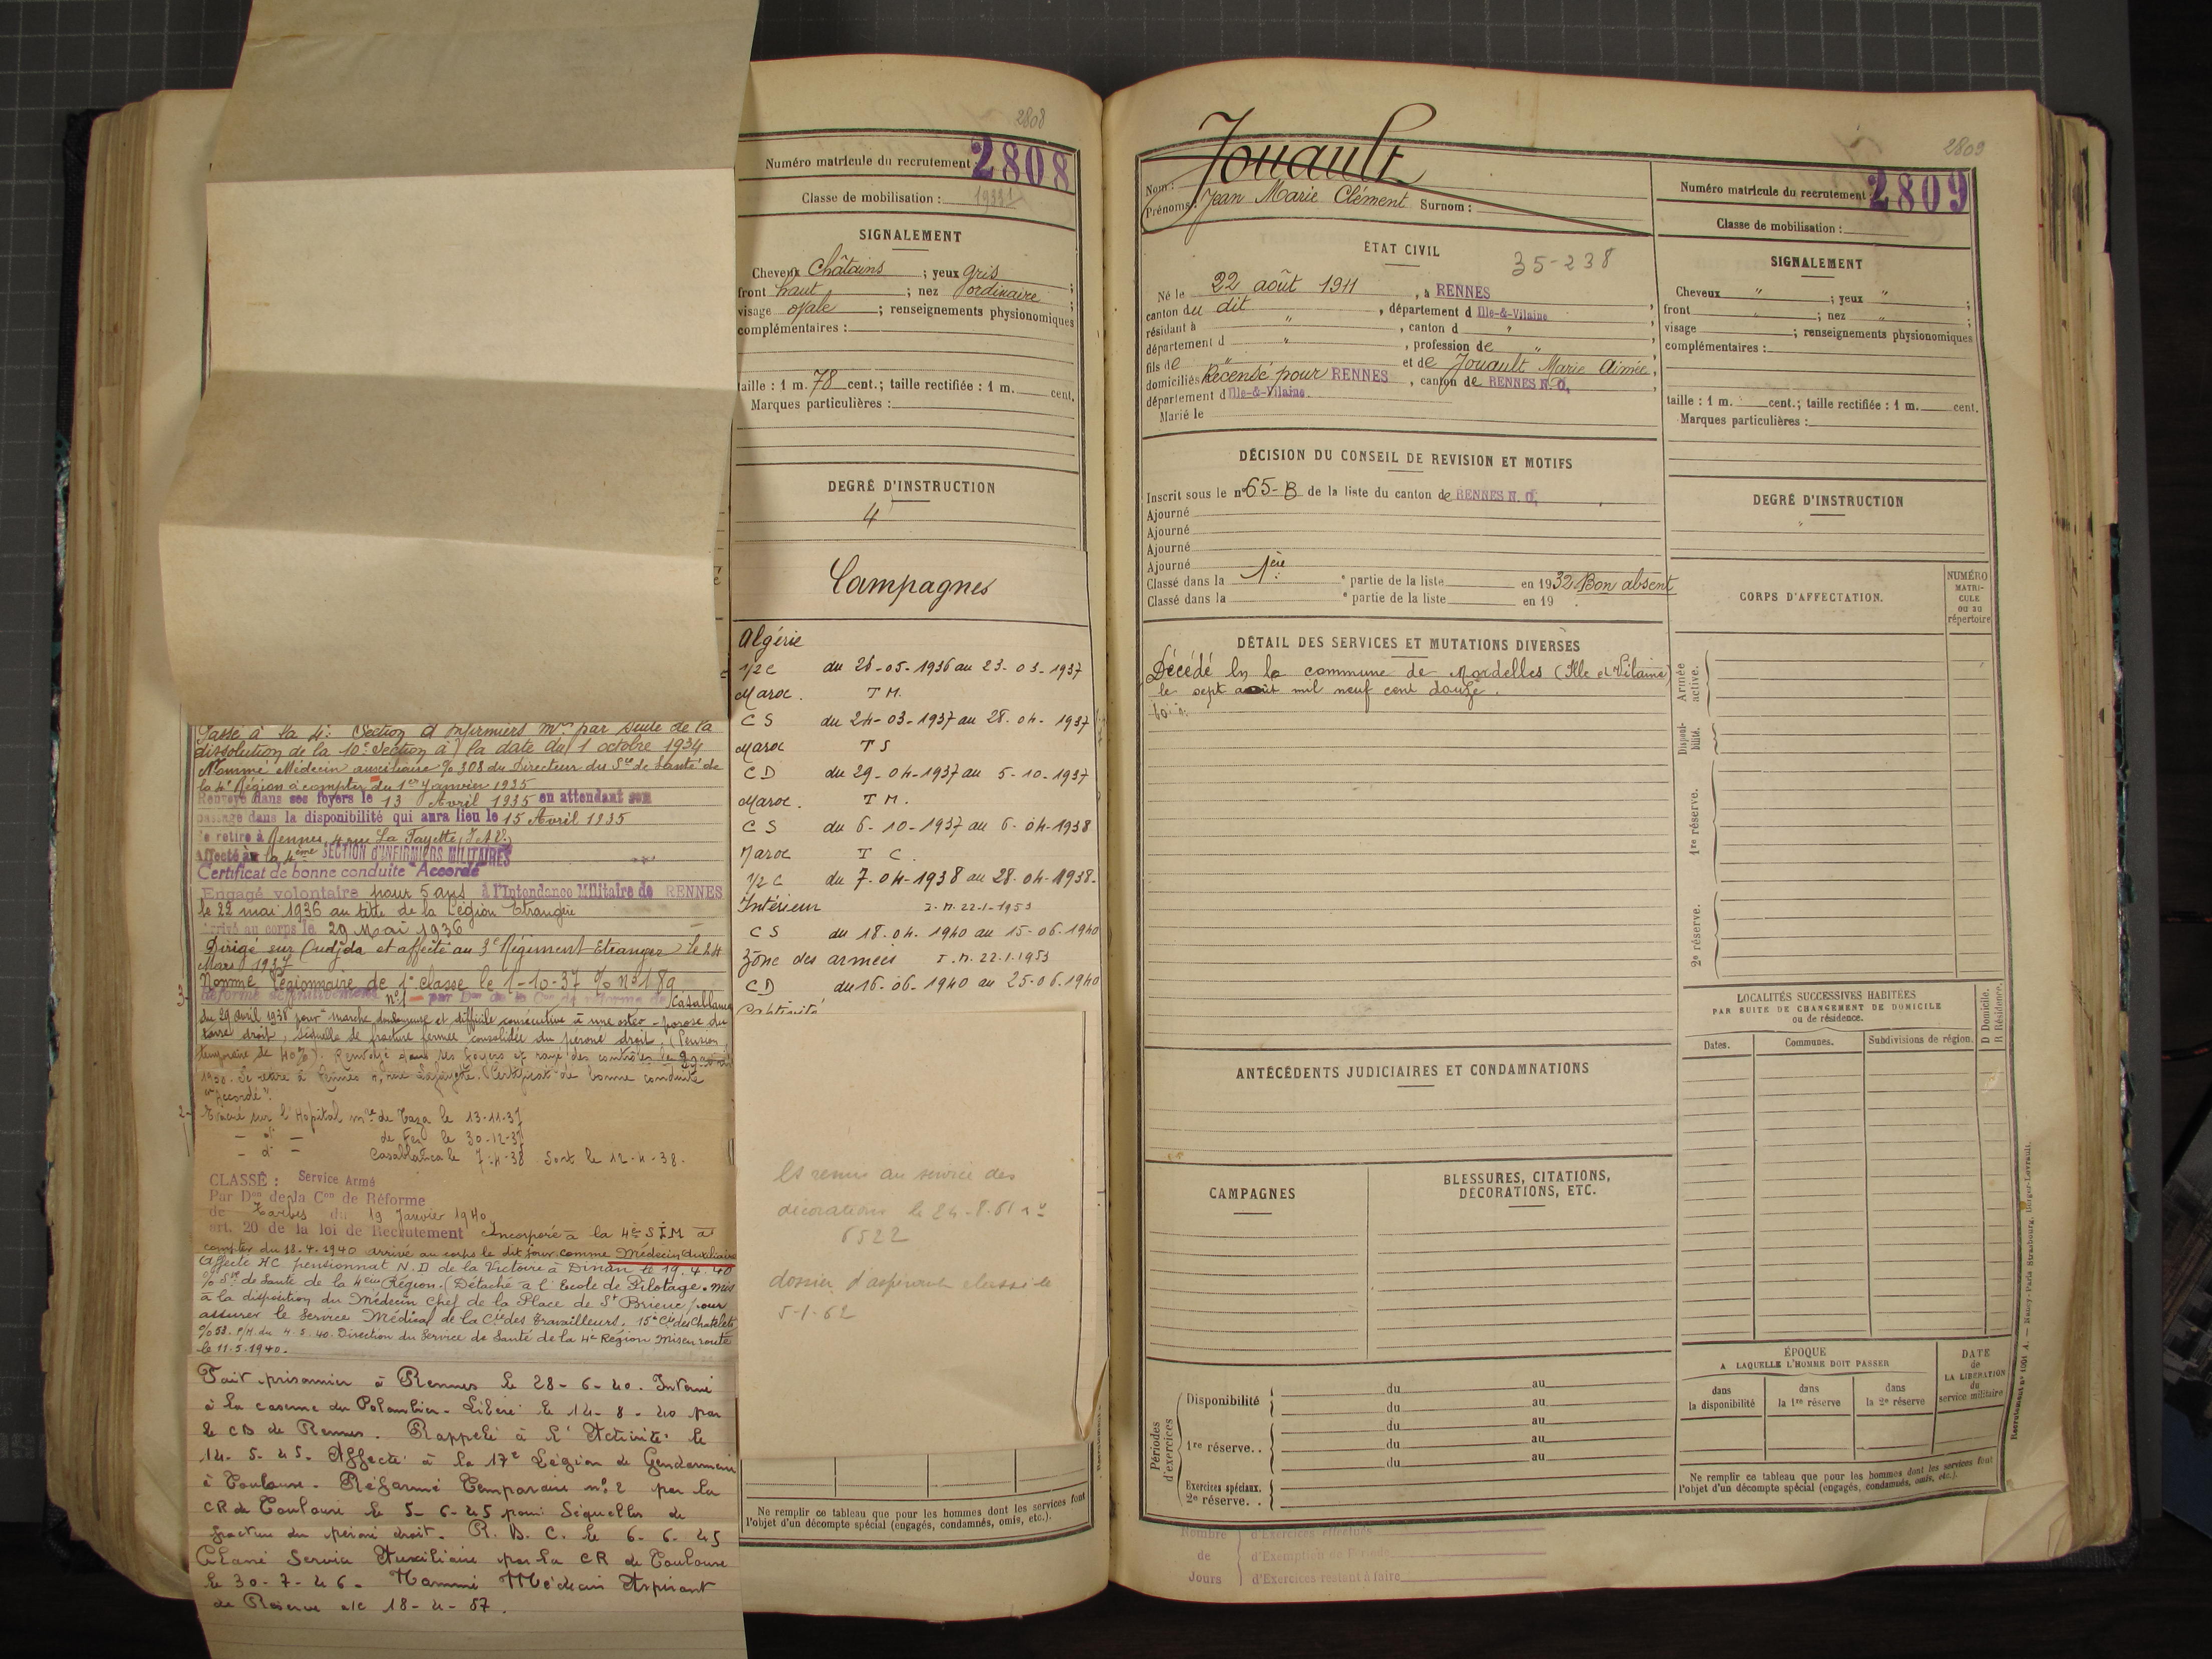 2808
Numéro matricule du recrutement : 2808
Classe de mobilisation :
SIGNALEMENT
Cheveux Châtains ; yeux gris ;
front haut ; nez ordinaire ;
visage ovale ; renseignements physionomiques
complémentaires :
taille : 1 m. 78 cent.; taille rectifiée : 1 m. cent.
Marques particulières :
DEGRÉ D'INSTRUCTION
4
Campagnes
Algérie
1/2 C du 26-05-1936 au 23-03-1937
Maroc. T M.
C S du 24-03-1937 au 28.04-1937
Maroc T S
C D du 29-04-1937 au 5-10-1937
Maroc. T M.
C S du 6-10-1937 au 6-04-1938
Maroc T C.
1/2 C du 7-04-1938 au 28-04-1938-
Intérieur I.M. 22-1-1953
C S du 18.04.1940 au 15-06.1940
Zône des armées I.M. 22.1.1953
C D du 16.06-1940 au 25-06.1940
Captivité
Passé à la 4e Section d'Infirmiers mres par suite de la
dissolution de la 10e Section à la date du 1 octobre 1934
Nommé Médecin auxiliaire % 308 du Directeur du Sce de Santé de
la 4e Région à compter du 1er Janvier 1935
Renvoyé dans ses foyers le 13 Avril 1935 en attendant son
passage dans la disponibilité qui aura lieu le 15 Avril 1935
Se retire à Rennes, 4 rue La Fayette, I et V.
Affecté à la 4ème SECTION D'INFIRMIERS MILITAIRES
Certificat de bonne conduite "Accordé"
Engagé volontaire pour 5 ans à l'Intendance Militaire de RENNES
le 22 mai 1936 au titre de la Légion Etrangère
Arrivé au corps le 29 Mai 1936
Dirigé sur Oudjda et affecté au 3e Régiment Etranger le 24
Mars 1937
Nommé Légionnaire de 1e classe le 1-10-37 % No 189
Réformé définitivement no 1 par Don de la Con de réforme de Casablanca
du 29 avril 1938 pour "marche douloureuse et difficile consécutive à une ostéo-porose du
tarse droit, séquelle de fracture fermée consolidée du péroné droit. (Pension
temporaire de 40%). Renvoyé dans ses foyers et rayé des contrôles le 29 avril
1938. Se retire à Rennes 4, rue Lafayette. Certificat de bonne conduite
"Accordé".
Evacué sur l'Hopital mre de Taza le 13-11-37
— d° — de Fez le 30-12-37
— d° — Casablanca le 7-4-38 Sort le 12-4-38.
CLASSÉ : Service Armé
Par Don de la Con de Réforme
de Tarbes du 19 Janvier 1940
art. 20 de la loi de Recrutement Incorporé à la 4e S I M à
compter du 18.4.1940 arrivé au corps le dit jour comme Médecin Auxiliaire
Affecté HC pensionnat N.D de la Victoire à Dinan le 19.4.40
% Sce de Santé de la 4ème Région. (Détaché à l'Ecole de Pilotage. mis
à la disposition du Médecin Chef de la Place de St Brieuc pour
assurer le Service Médical de la Cie des Travailleurs. 15e Cie des Chatelets
% 58. P/H. du 4.5.40. Direction du Service de Santé de la 4e Région Mis en route
le 11.5.1940.
Fait prisonnier à Rennes le 28-6-40. Interné
à la caserne du Colombier - Libéré le 14-8-40 par
le CD de Rennes. Rappelé à l'Activité le
14-5-45. Affecté à la 17e Légion de Gendarmerie
à Toulouse - Réformé Temporaire no 2 par la
CR de Toulouse le 5-6-45 pour Séquelles de
fracture du péroné droit. R.D.C. le 6-6-45
Classé Service Auxiliaire par la CR de Toulouse
le 30-7-46. Nommé Médecin Aspirant
de Réserve a/c 18-4-57.
ES remis au service des
décorations le 24-8.61 no
6522
dossier d'aspirant classé le
5-1-62
Ne remplir ce tableau que pour les hommes dont les services font
l'objet d'un décompte spécial (engagés, condamnés, omis, etc.).
2809
Nom : Jouault
Prénoms : Jean Marie Clément Surnom :
Numéro matricule du recrutement : 2809
Classe de mobilisation :
ÉTAT CIVIL
35-238
Né le 22 août 1911, à RENNES
canton du dit, département d Ille-&-Vilaine
résidant à ", canton d ",
département d ", profession de ",
fils de " et de Jouault Marie Aimée,
domiciliés Recensé pour RENNES, canton de RENNES N.O,
département d Ille-&-Vilaine.
Marié le
SIGNALEMENT
Cheveux " ; yeux " ;
front " ; nez " ;
visage ; renseignements physionomiques
complémentaires :
taille : 1 m. cent.; taille rectifiée : 1 m. cent.
Marques particulières :
DÉCISION DU CONSEIL DE REVISION ET MOTIFS
Inscrit sous le no 65-B de la liste du canton de RENNES N. O,
Ajourné
Ajourné
Ajourné
Ajourné
Classé dans la 1ère e partie de la liste en 1932 Bon absent
Classé dans la e partie de la liste en 19 .
DEGRÉ D'INSTRUCTION
"
CORPS D'AFFECTATION.
NUMÉRO
MATRI-
CULE
ou au
répertoire
DÉTAIL DES SERVICES ET MUTATIONS DIVERSES
Décédé en la commune de Mordelles (Ille et Vilaine)
le sept août mil neuf cent douze.
Armée
active.
Disponi-
bilité.
1re réserve.
2e réserve.
LOCALITÉS SUCCESSIVES HABITÉES
PAR SUITE DE CHANGEMENT DE DOMICILE
ou de résidence.
D Domicile.
R Résidence.
Dates. Communes. Subdivisions de région.
ANTÉCÉDENTS JUDICIAIRES ET CONDAMNATIONS
CAMPAGNES
BLESSURES, CITATIONS,
DÉCORATIONS, ETC.
Périodes
d'exercices
Disponibilité du au
du au
1re réserve. . du au
du au
du au
Exercices spéciaux.
2e réserve. .
ÉPOQUE
A LAQUELLE L'HOMME DOIT PASSER
dans
la disponibilité
dans
la 1re réserve
dans
la 2e réserve
DATE
de
LA LIBÉRATION
du
service militaire
Ne remplir ce tableau que pour les hommes dont les services font
l'objet d'un décompte spécial (engagés, condamnés, omis, etc.).
Nombre d'Exercices effectués
de d'Exemption de Période
Jours d'Exercices restant à faire